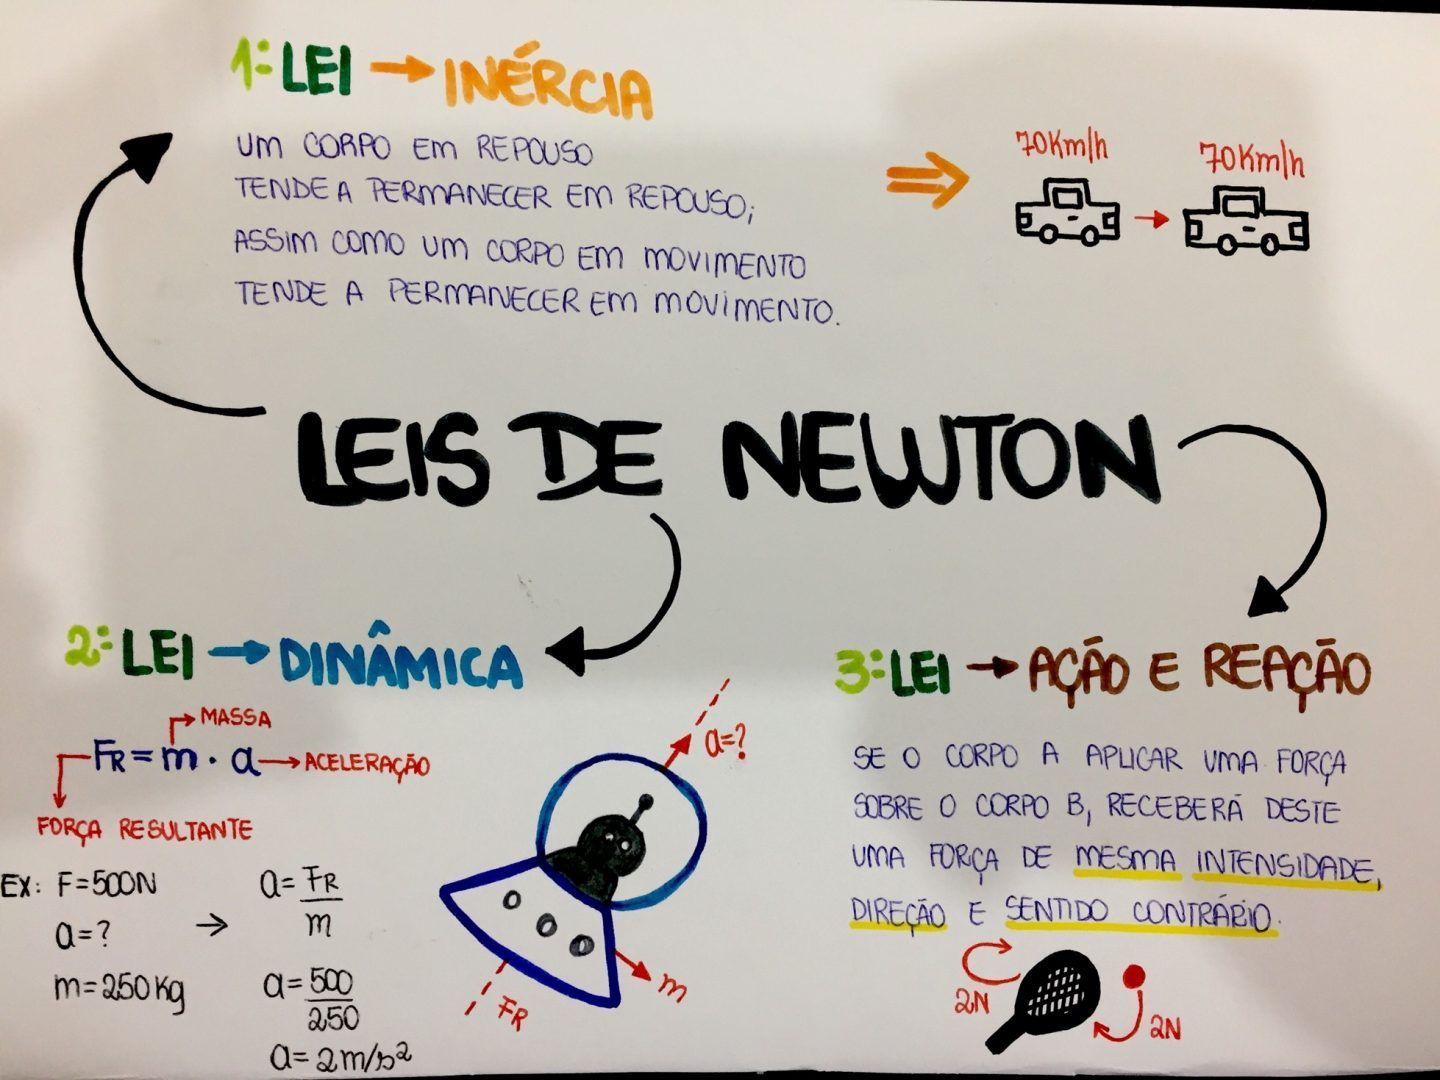 1ª LEI → INÉRCIA
UM CORPO EM REPOUSO
TENDE A PERMANECER EM REPOUSO;
ASSIM COMO UM CORPO EM MOVIMENTO
TENDE A PERMANECER EM MOVIMENTO.
70Km/h
70Km/h
LEIS DE NEWTON
2ª LEI → DINÂMICA
MASSA
FR = m · a → ACELERAÇÃO
FORÇA RESULTANTE
EX: F=500N
a=?
m=250Kg
a=FR/m
a=500/250
a=2m/s²
a=?
m
FR
3ª LEI → AÇÃO E REAÇÃO
SE O CORPO A APLICAR UMA FORÇA
SOBRE O CORPO B, RECEBERÁ DESTE
UMA FORÇA DE MESMA INTENSIDADE,
DIREÇÃO E SENTIDO CONTRÁRIO.
2N
2N